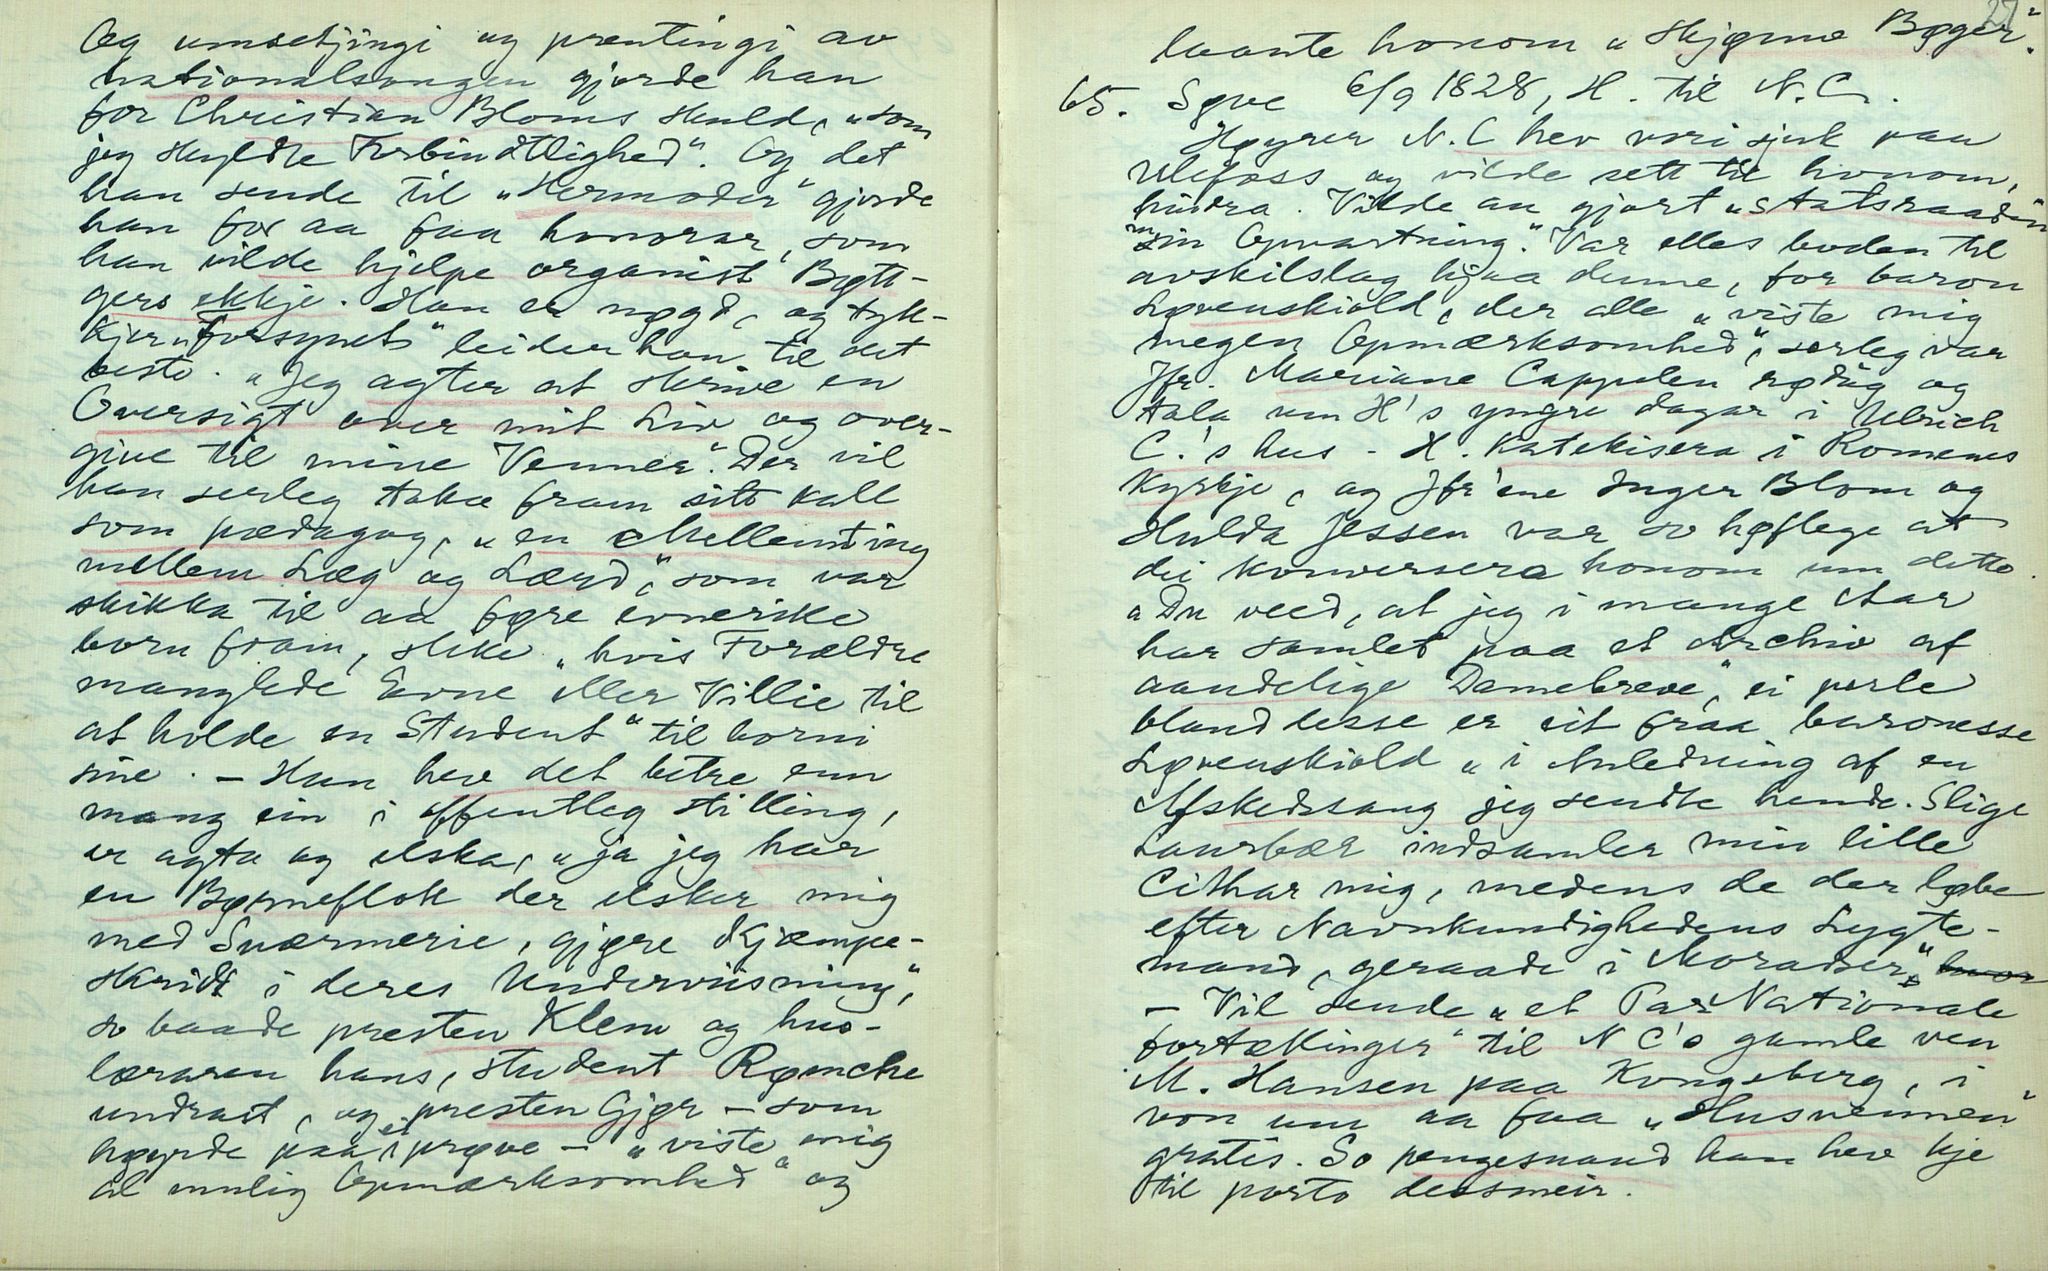 Og umsetjingi og prentingi av
nationalsongen gjorde han
for Christian Bloms Skuld, „som
jeg skyldte Forbindtlighed“. Og det
han sende til „Hermoder“ gjorde
han for aa faa honorar, som
han vilde hjelpe organist Bøtt-
gers ekkje. Han er nøgd, og tyk-
kjer „Forsynet“ leider han til det
beste. „Jeg agter at skrive en
Oversigt over mit Liv og over-
give til mine Venner“. Der vil
han serleg taka fram sitt kall
som pædagog, „en Mellemting
mellem Læg og Lærd“, som var
skikka til aa føre evnerike
born fram, slike „hvis Forældre
manglede Evne eller Villie til
at holde en Student“ til borni
sine. – Han hev det betre enn
mang ein i offentleg stilling,
er agta og elska, „ja jeg har
en Børneflok der elsker mig
med Sværmerie, gjøre Kjæmpe-
skridt i deres Underviisning“,
so baade presten Klem og hus-
læraren hans, student Rømcke
undrast, og presten Gjør – som
høyrde paa ei prøve – „viste mig
al mulig Opmærksomhed“ og
27
laante honom „Skjønne Bøger“.
65. Søve 6/9 1828, H. til N.C.
Høyrer N.C hev vori sjuk paa
Ulefoss og vilde sett til honom,
hindra. Vilde au gjort „Statsraadin
min Opvartning“. Var elles boden til
avskilslag hjaa denne, for baron
Løvenskiold, der alle „viste mig
megen Opmærksomhed“, serleg var
Jfr. Mariane Cappelen rødug og
tala um H's yngre dagar i Ulrich
C.'s hus – H. katekisera i Romenes
kyrkje, og Jfr'ene Inger Blom og
Hulda Jessen var so høflege at
dei konversera honom um dette.
„Du veed, at jeg i mange Aar
har samlet paa et Archiv af
aandelige Damebreve“, ei perle
bland desse er eit fraa baronesse
Løvenskiold „i Anledning af en
Afskedssang jeg sendte hende. Slige
Laurbær indsamler min lille
Cithar mig, medens de der løbe
efter Navnkundighedens Lygte-
mand, geraade i Moradser“.
– Vil sende „et Par Nationale
fortællinger“ til N C's gamle ven
M. Hansen paa Kongsberg, i
von um aa faa „Husvennen“
gratis. So pengesnaud han hev kje
til porto dessmeir.